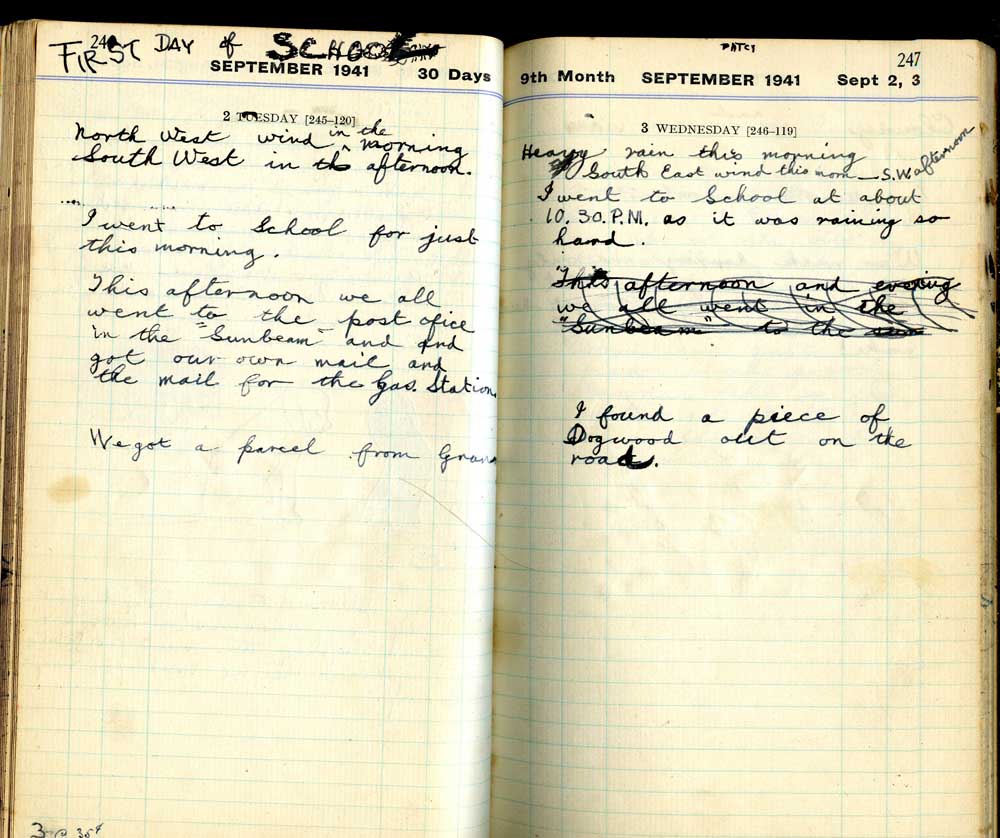 246
FIRST DAY of SCHOOL
SEPTEMBER 1941 30 Days
2 TUESDAY [245–120]
North West wind in the ^ Morning
South West in the afternoon.
I went to School for just
this morning.
This afternoon we all
went to the post ofice
in the "Sunbeam" and and
got our own mail and
the mail for the Gas. Station
We got a parcel from Gran
3 @ 35¢
PATCY
247
9th Month SEPTEMBER 1941 Sept 2, 3
3 WEDNESDAY [246–119]
Heavy rain this morning
South East wind this morn — S.W. afternoon
I went to School at about
10.30.P.M. as it was raining so
hard.
This afternoon and evening
we all went in the
"Sunbeam" to the sum
I found a piece of
Dogwood out on the
road.